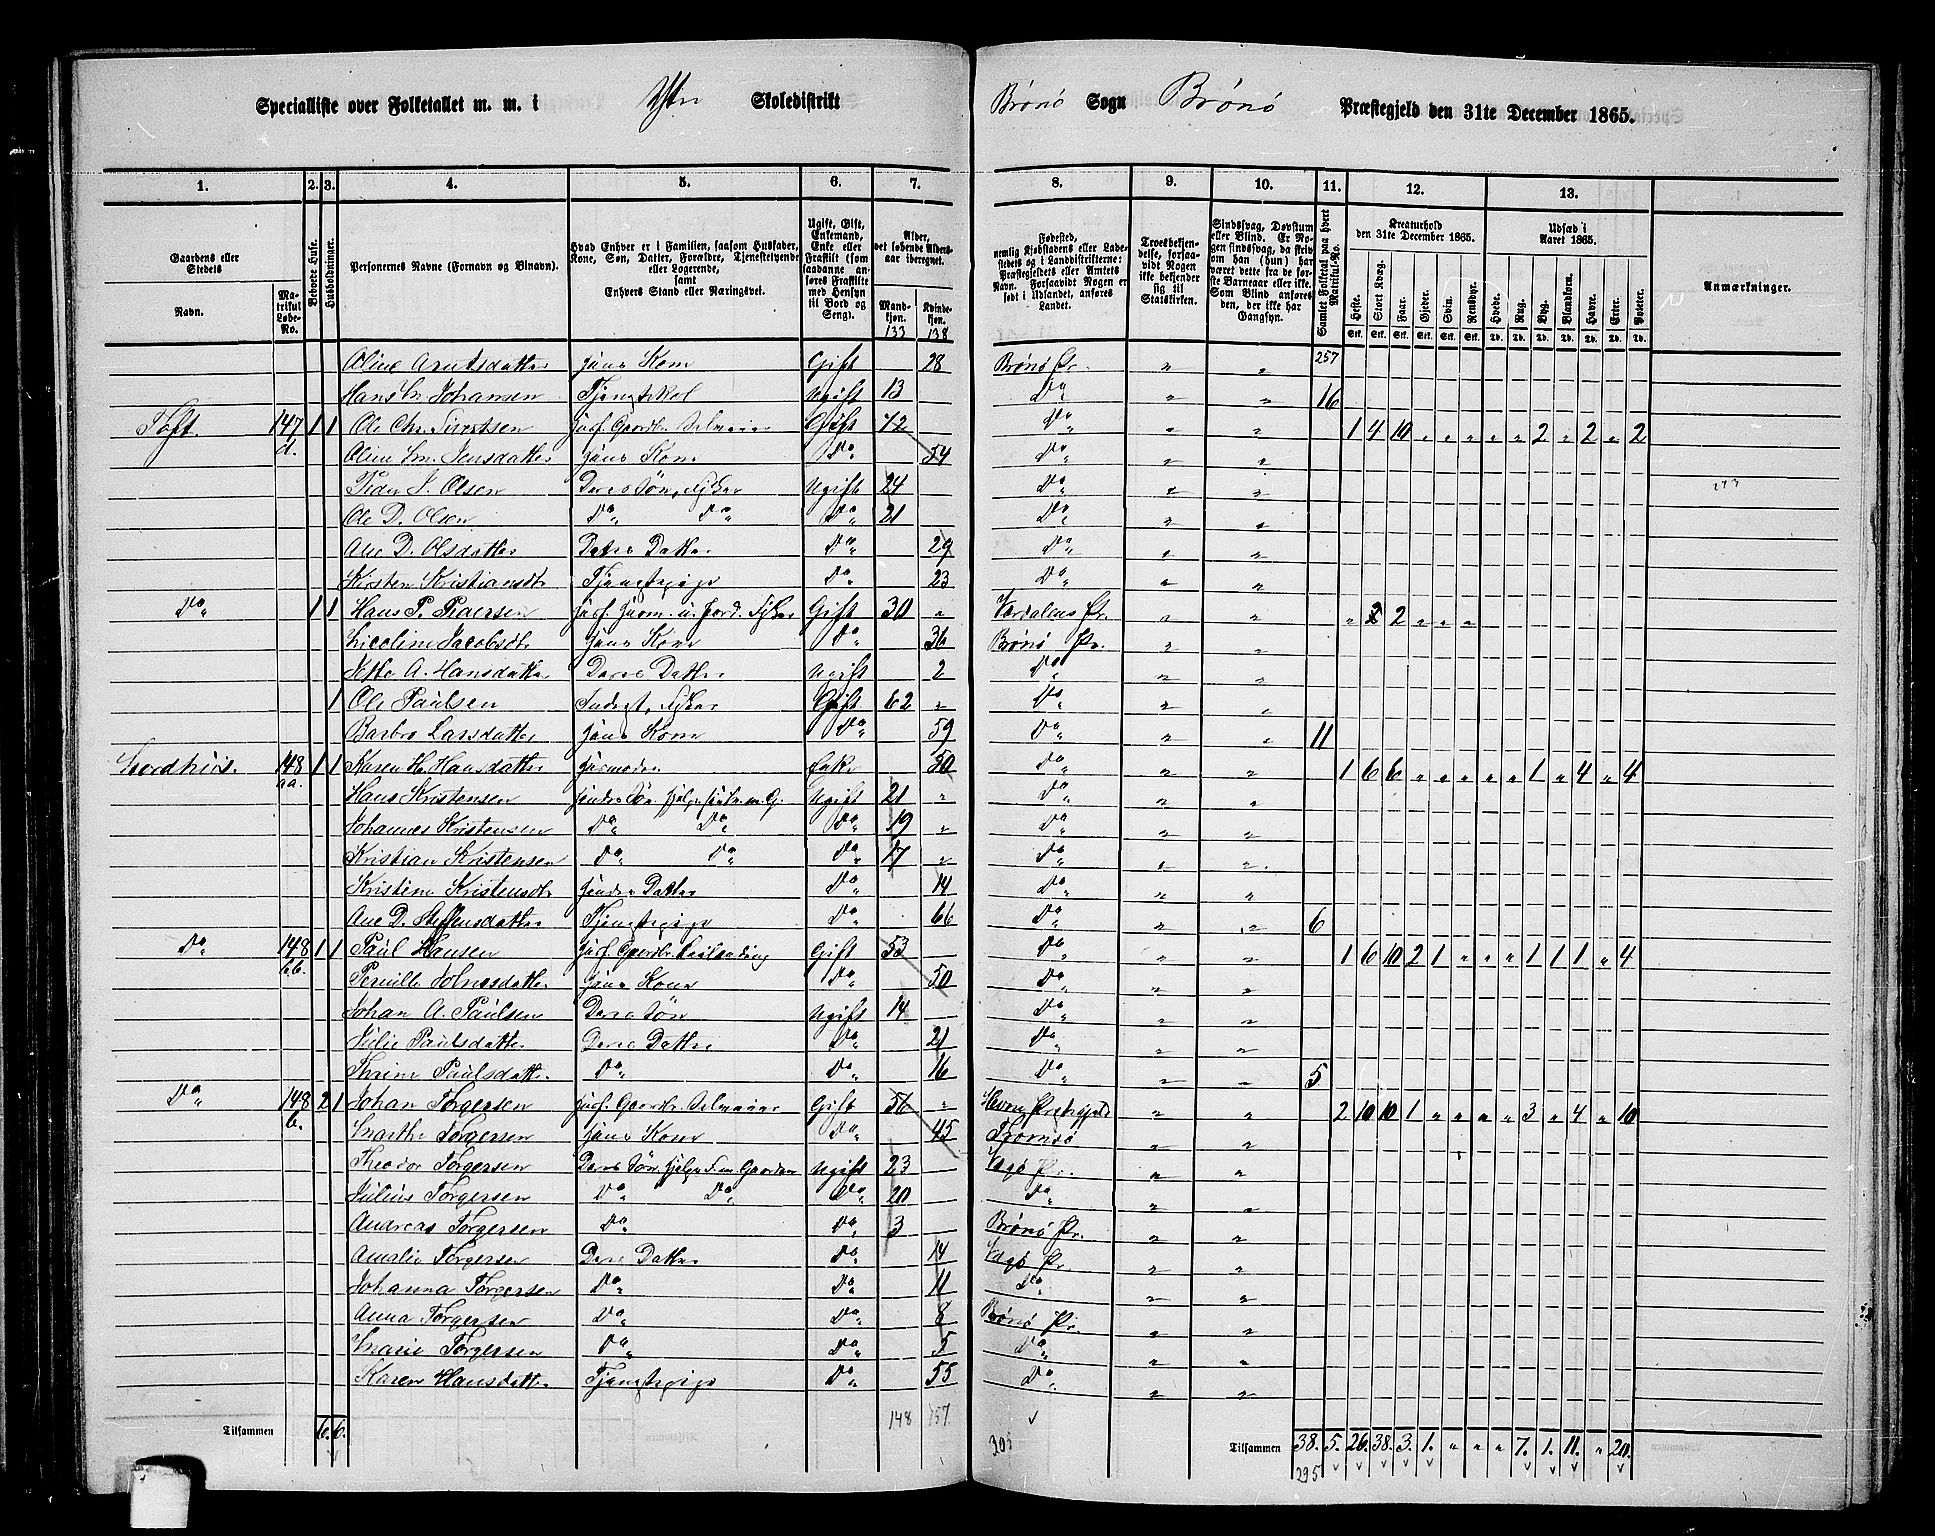 Specialliste over Folketallet m. m. i Ytre Skoledistrikt Brønø Sogn Brønø Præstegjeld den 31te December 1865.
1. 2. 3. 4. 5. 6. 7. 8. 9. 10. 11. 12. 13.
Gaardens eller Stedets
Navn.
Matrikul Løbe-No.
Beboede Huse.
Husholdninger.
Personernes Navne (Fornavn og Binavn).
Hvad Enhver er i Familien, saasom Husfader, Kone, Søn, Datter, Forældre, Tjenestetyende eller Logerende, samt Enhvers Stand eller Næringsvei.
Ugift, Gift, Enkemand, Enke eller Fraskilt (som saadanne anføres Fraskilte med Hensyn til Bord og Seng).
Alder, det løbende Alders-aar iberegnet.
Mandkjøn. 133
Kvindekjøn. 138
Fødested, nemlig Kjøbstadens eller Ladestedets og i Landdistrikterne: Præstegjeldets eller Amtets Navn. Forsaavidt Nogen er født i Udlandet, anføres Landet.
Troesbekjendelse, forsaavidt Nogen ikke bekjender sig til Statskirken.
Sindssvag, Døvstum eller Blind. Er Nogen sindssvag, da skrives om han (hun) har været dette fra de første Barneaar eller ikke. Som Blind anføres den, der ikke har Gangsyn.
Samlet Folketal paa hvert Matrikul-No.
Kreaturhold den 31te December 1865.
Heste. Stort Kvæg. Faar. Gjeder. Svin. Rensdyr.
Udsæd i Aaret 1865.
Hvede. Rug. Byg. Blandkorn. Havre. Erter. Poteter.
Anmærkninger.
Oline Arntsdatter hans Kone Gift 28 Brønø Pr. " " 257
Hans Johansen Ugift 13 Do " " 16
Toft. 147 d. 1 1 Ole Chr. Sivertsen Husf. Gaardbr. Selveier Gift 72 Do " " 1 4 10 " " " " " 2 " 2 " 2
Oline Jensdatter hans Kone Do 54 Do " "
Peder Olsen Deres Søn, Fisker Ugift 24 Do " "
Ole D. Olsen Do Do Do 21 Do " "
Ane D. Olsdatter Deres Datter Do 29 Do " "
Kirsten Kristiansdtr Tjenestepige Do 23 Do " "
Do 1 1 Hans P. Pedersen Husf. Husm. u. Jord. Fisker Gift 30 " Værdalens Pr. " " " 2 2 " " "
Nicoline Jacobsdtr hans Kone Do 36 Brønø Pr. " "
Jette A. Hansdatter Deres Datter Ugift 2 Do " "
1 Ole Paulsen Inderst, Fisker Gift 62 " Do " "
Barbro Larsdatter hans Kone Do 59 Do " " 11
Nordhus. 148 aa. 1 1 Karen H. Hansdatter Husmoder Enke 50 Do " " 1 6 6 " " " " " 1 " 4 " 4
Hans Kristensen hendes Søn, hjelper hende m. G. Ugift 21 " Do " "
Johannes Kristensen Do Do Do 19 " Do " "
Kristian Kristensen Do Do Do 17 " Do " "
Kristine Kristensdtr hendes Datter Do 14 Do " "
Ane D. Steffensdatter Tjenestepige Do 66 Do " " 6
Do 148 bb. 1 1 Paul Hansen Husf. Gaardbr. Leilænding Gift 53 Do " " 1 6 10 2 1 " " " 1 1 1 " 4
Pernille Johnsdatter hans Kone Do 50 Do " "
Johan A. Paulsen Deres Søn Ugift 14 Do " "
Julie Paulsdatter Deres Datter Do 21 Do " "
Paulsdatter Do Do 16 Do " " 5
Do 148 b. 2 1 Johan Torgersen Husf. Gaardbr. Selveier Gift 56 " " " 2 10 10 1 " " " " 3 " 4 " 10
Marthe Torgersen hans Kone Do 45 Tromsø " "
Theodor Torgersen Deres Søn, hjelper F. m. Gaarden Ugift 23 Vegø Pr. " "
Julius Torgersen Do Do Do 20 Do " "
Andreas Torgersen Do Do 3 Brønø Pr. " "
Amalie Torgersen Deres Datter Do 14 Vegø Pr. " "
Johanna Torgersen Do Do 11 Do " "
Anna Torgersen Do Do 8 Brønø Pr. " "
Marie Torgersen Do Do 5 Do " "
Karen Hansdatter Tjenestepige Do 55 Do " "
Tilsammen 6. 6. 148 157. 305 Tilsammen 38. 5. 26. 38. 3. 1. " " " 7. 1. 11. " 20.
295